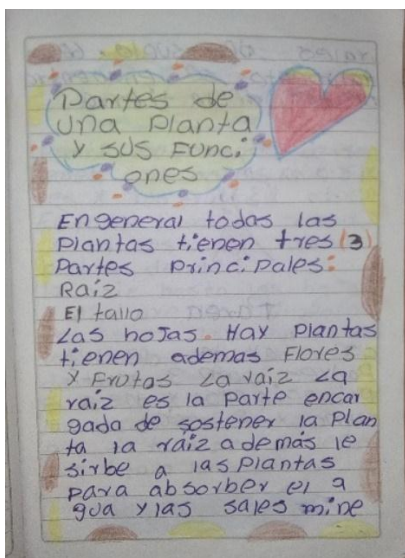 Partes de
una Planta
y sus Funci
ones
En general todas las
Plantas tienen tres (3)
Partes Principales:
Raíz
El tallo
Las hojas. Hay Plantas
tienen ademas Flores
y Frutas La raíz La
raíz es la Parte encar
gada de sostener la Plan
ta la raíz además le
sirbe a las Plantas
para absorber el a
gua y las sales mine